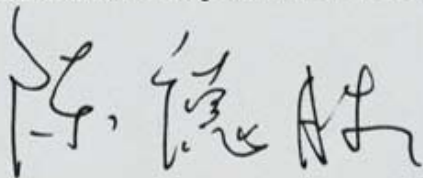 陈德胜